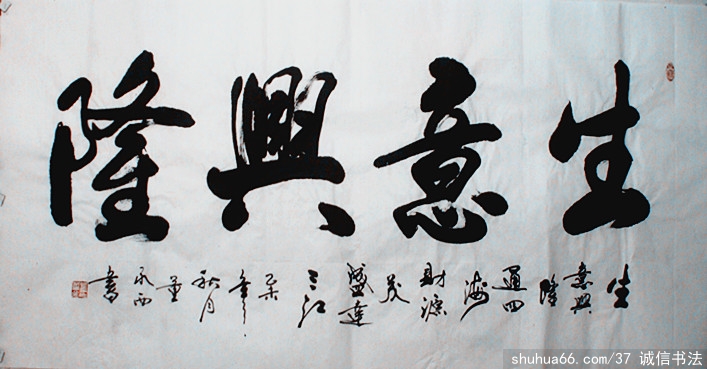 生意興隆
生
意興
隆
通四
海
財源
茂
盛達
三江
秋月
書
shuhua66.com/37 诚信书法